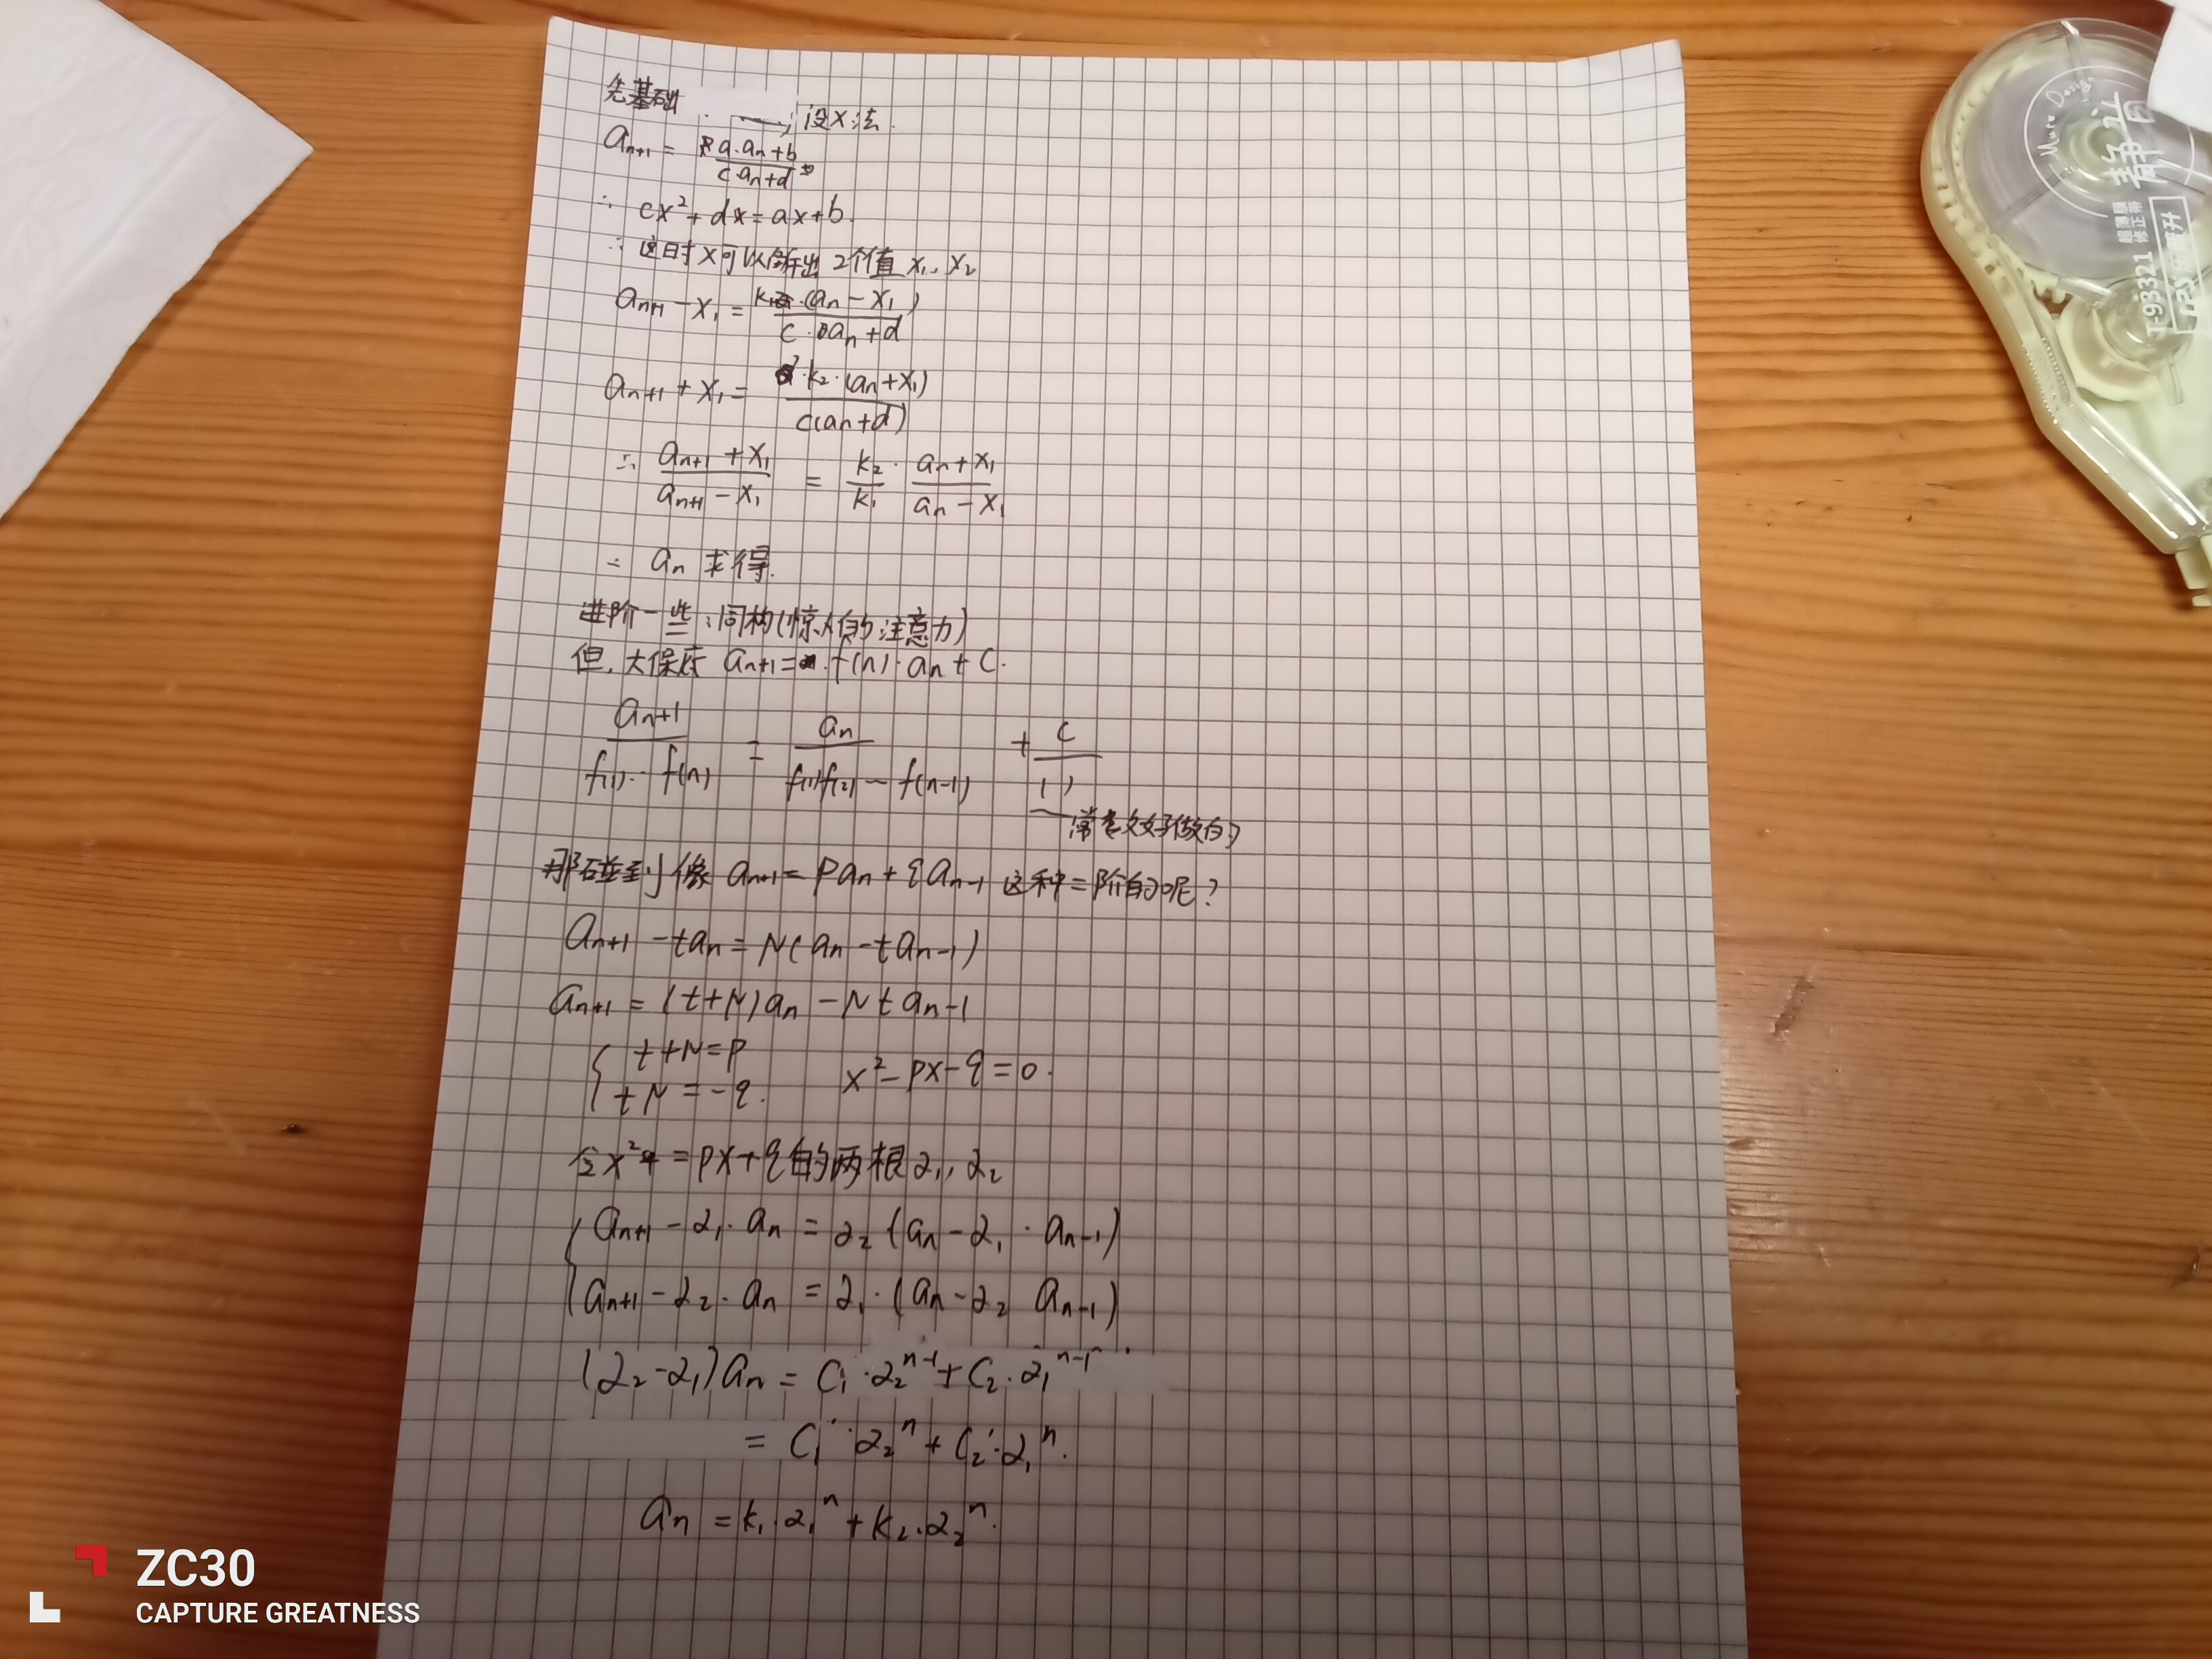 先基础
设X法.
a_{n+1} = \frac{a·a_n+b}{c·a_n+d}
∴ cx²+dx=ax+b.
∴ 这时X可以解出2个值 x₁, x₂
a_{n+1} - x₁ = \frac{k₁·(a_n-x₁)}{c·a_n+d}
a_{n+1} + x₁ = \frac{k₂·(a_n+x₁)}{c(a_n+d)}
∴ \frac{a_{n+1}+x₁}{a_{n+1}-x₁} = \frac{k₂}{k₁}·\frac{a_n+x₁}{a_n-x₁}
∴ a_n 求得.
进阶一些:同构(惊人的注意力)
但,大保底 a_{n+1}=f(n)·a_n+C.
\frac{a_{n+1}}{f(1)…f(n)} = \frac{a_n}{f(1)f(2)…f(n-1)} + \frac{c}{( )}
好做的
那碰到像 a_{n+1}=pa_n+qa_{n-1} 这种二阶的呢?
a_{n+1}-ta_n=N(a_n-ta_{n-1})
a_{n+1}=(t+N)a_n-Nta_{n-1}
{ t+N=p
tN=-q. x²-px-q=0.
令x²=px+q的两根α₁,α₂
{ a_{n+1}-α₁·a_n=α₂(a_n-α₁·a_{n-1})
a_{n+1}-α₂·a_n=α₁·(a_n-α₂a_{n-1})
(α₂-α₁)a_n=C₁·α₂^{n-1}+C₂·α₁^{n-1}
=C₁'·α₂^n+C₂'·α₁^n.
a_n=k₁·α₁^n+k₂·α₂^n.
Mute Deng
静谧
超薄膜
修正带
T-98321
ZC30
CAPTURE GREATNESS